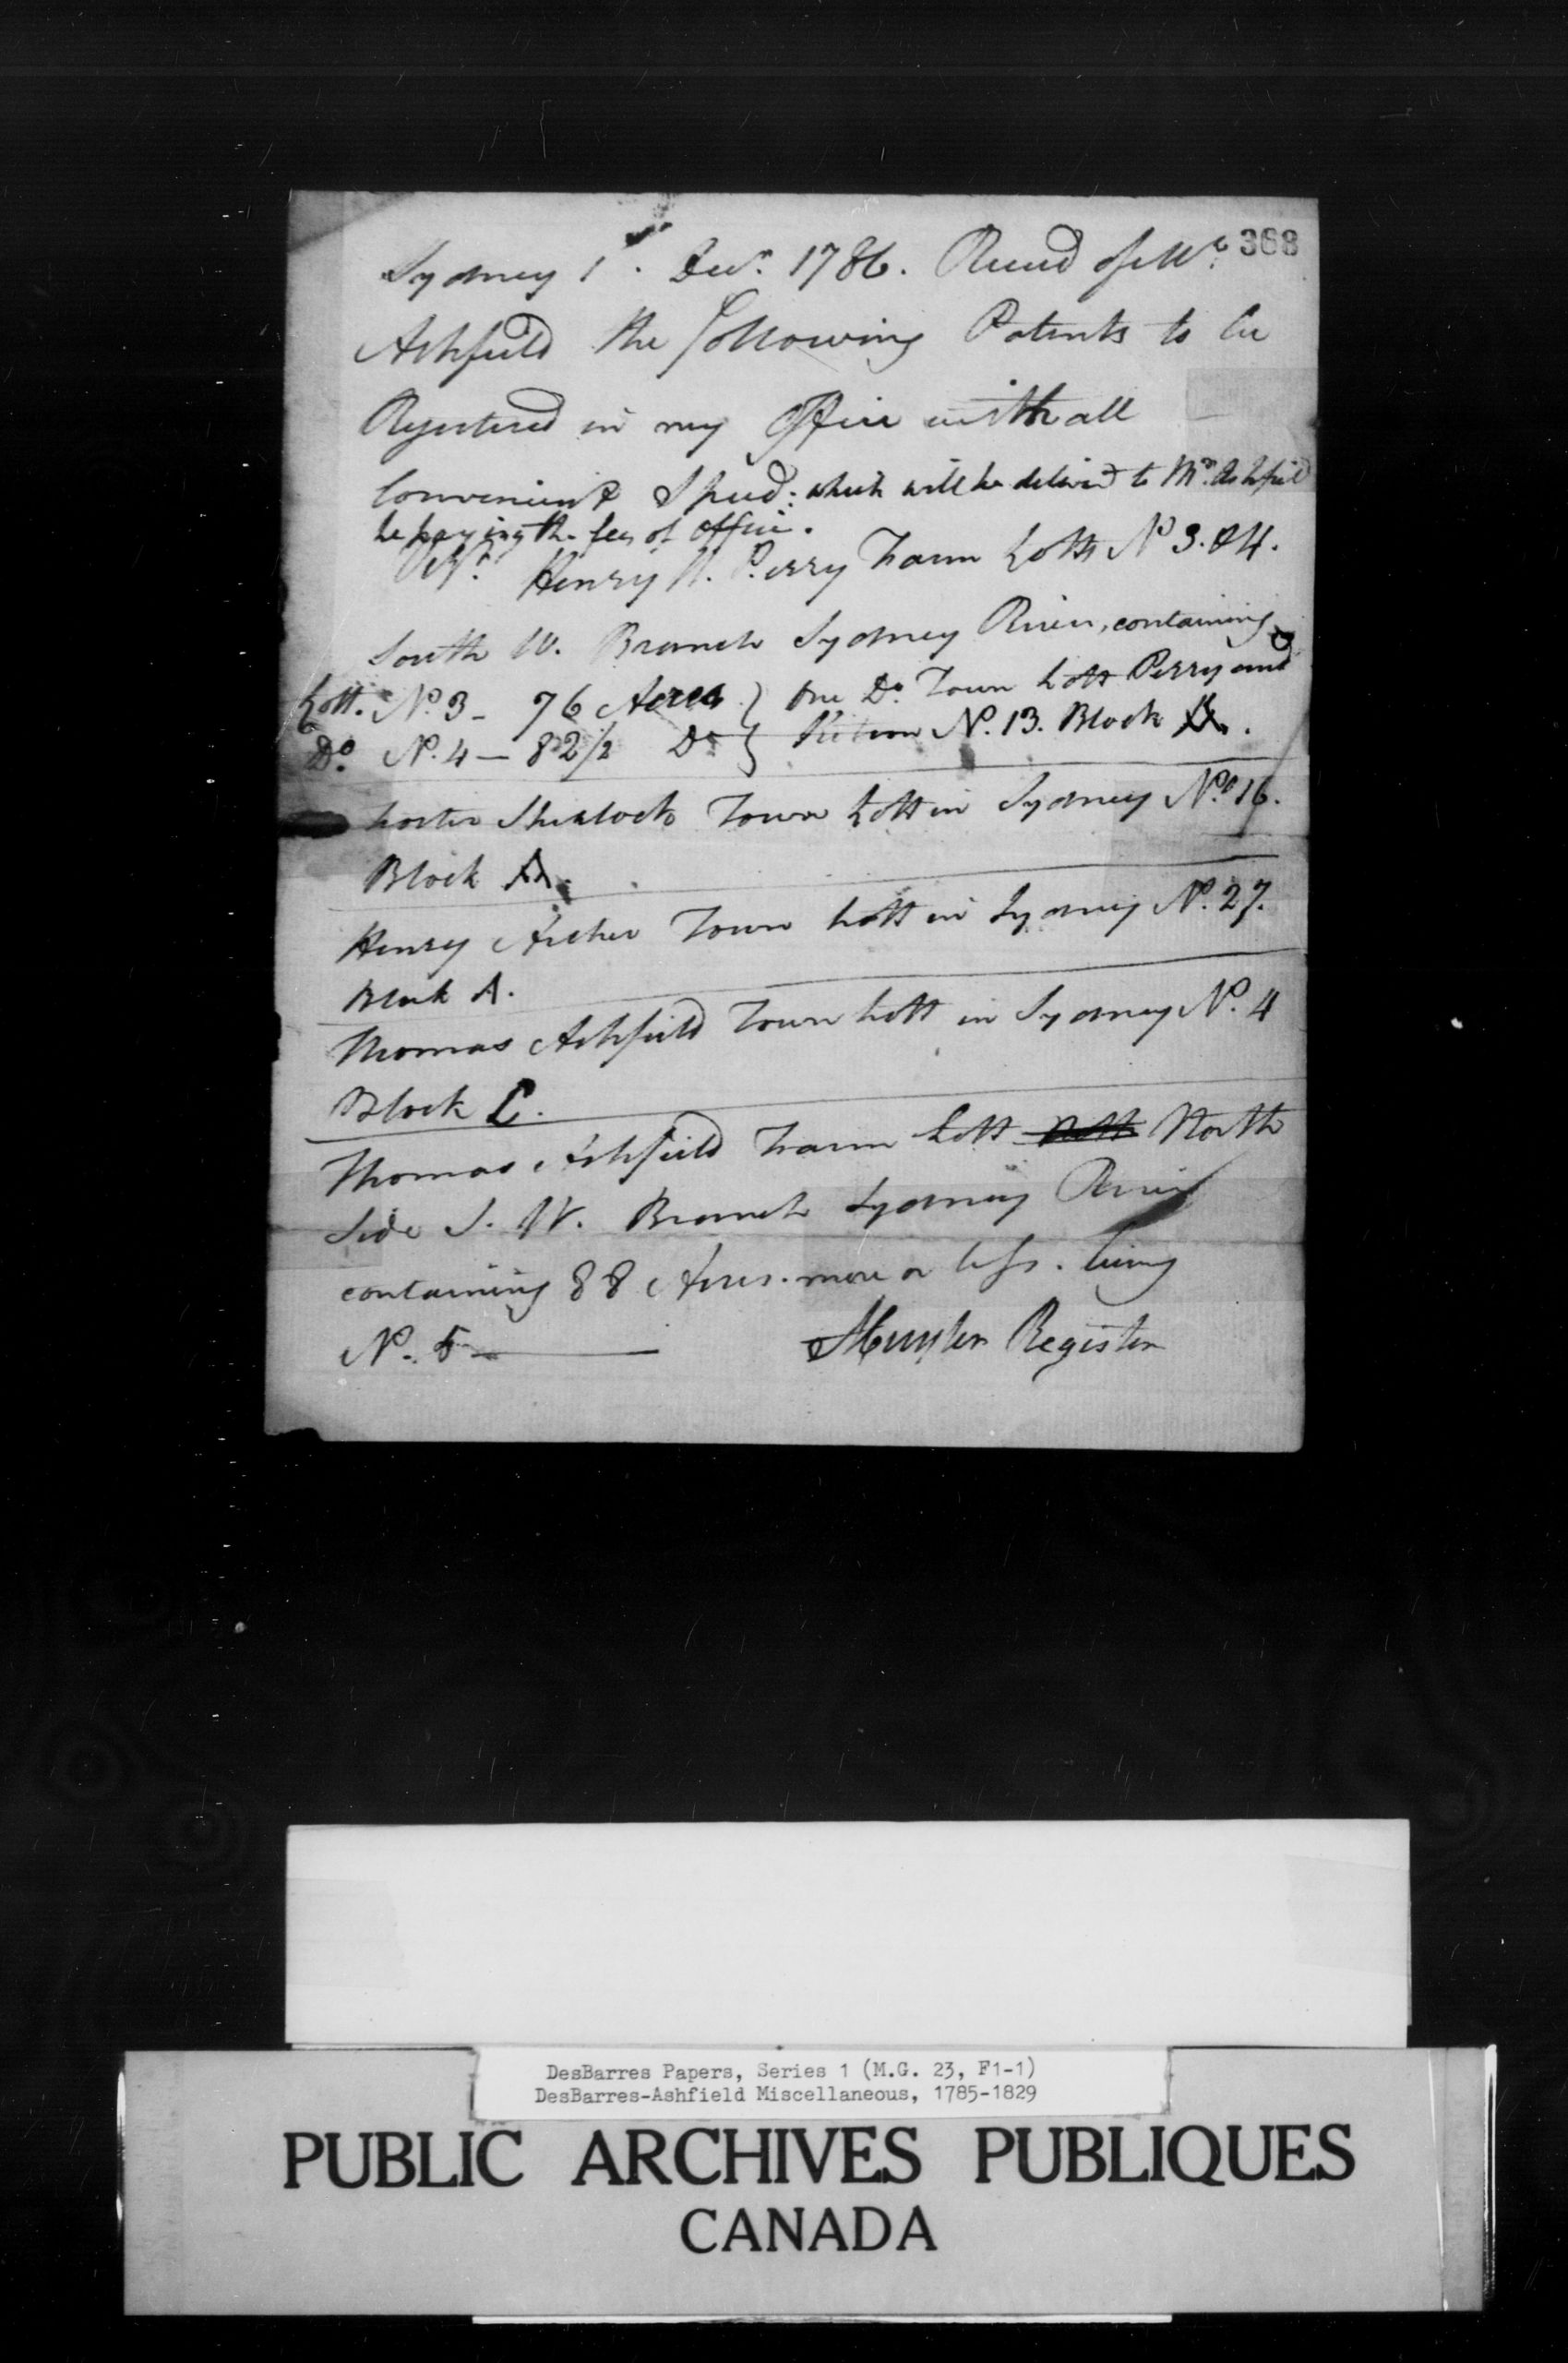 368
Sydney 1st. Decr. 1786. Received of Mr.
Ashfield the following Patents to be
Registered in my Office with all
Convenient Speed: which will be delivered to Mr. Ashfield
he paying the fees of office.
Henry W. Perry Farm Lotts No 3. & 4.
South W. Branch Sydney River, containing
Lott. No. 3 - 76 Acres } One Do. Town Lott Perry and
Do. No. 4 - 82 1/2 Do } No. 13. Block
Sherlock Town Lott in Sydney No. 16.
Block A.
Henry Archer Town Lott in Sydney No. 27.
Block A.
Thomas Ashfield Town Lott in Sydney No. 4
Block C.
Thomas Ashfield Farm Lott North
Side S. W. Branch Sydney River
containing 88 Acres. more or less. being
No. 5 - Register
DesBarres Papers, Series 1 (M.G. 23, F1-1)
DesBarres-Ashfield Miscellaneous, 1785-1829
PUBLIC ARCHIVES PUBLIQUES
CANADA